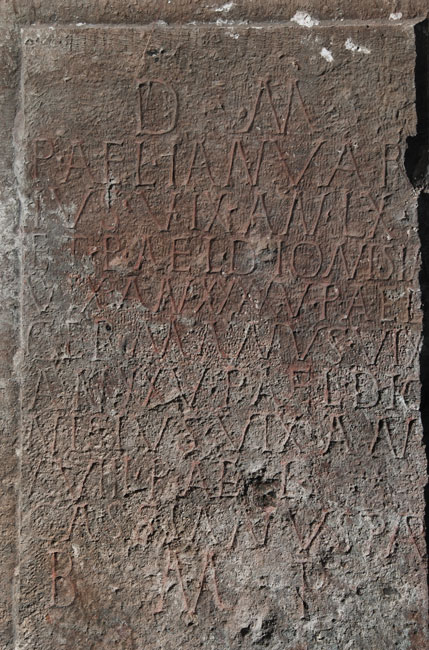 D M
P AEL IANVAR
IVS VIX AN LX
ET P AEL DIONISI
P AEL
GERMANVS VIX
P AEL DIO
NISIVS VIX AN
P AEL
ASIANVS PA
B M P